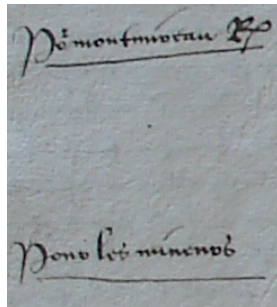 Po^r montmoreau Rx
Pour les mineurs